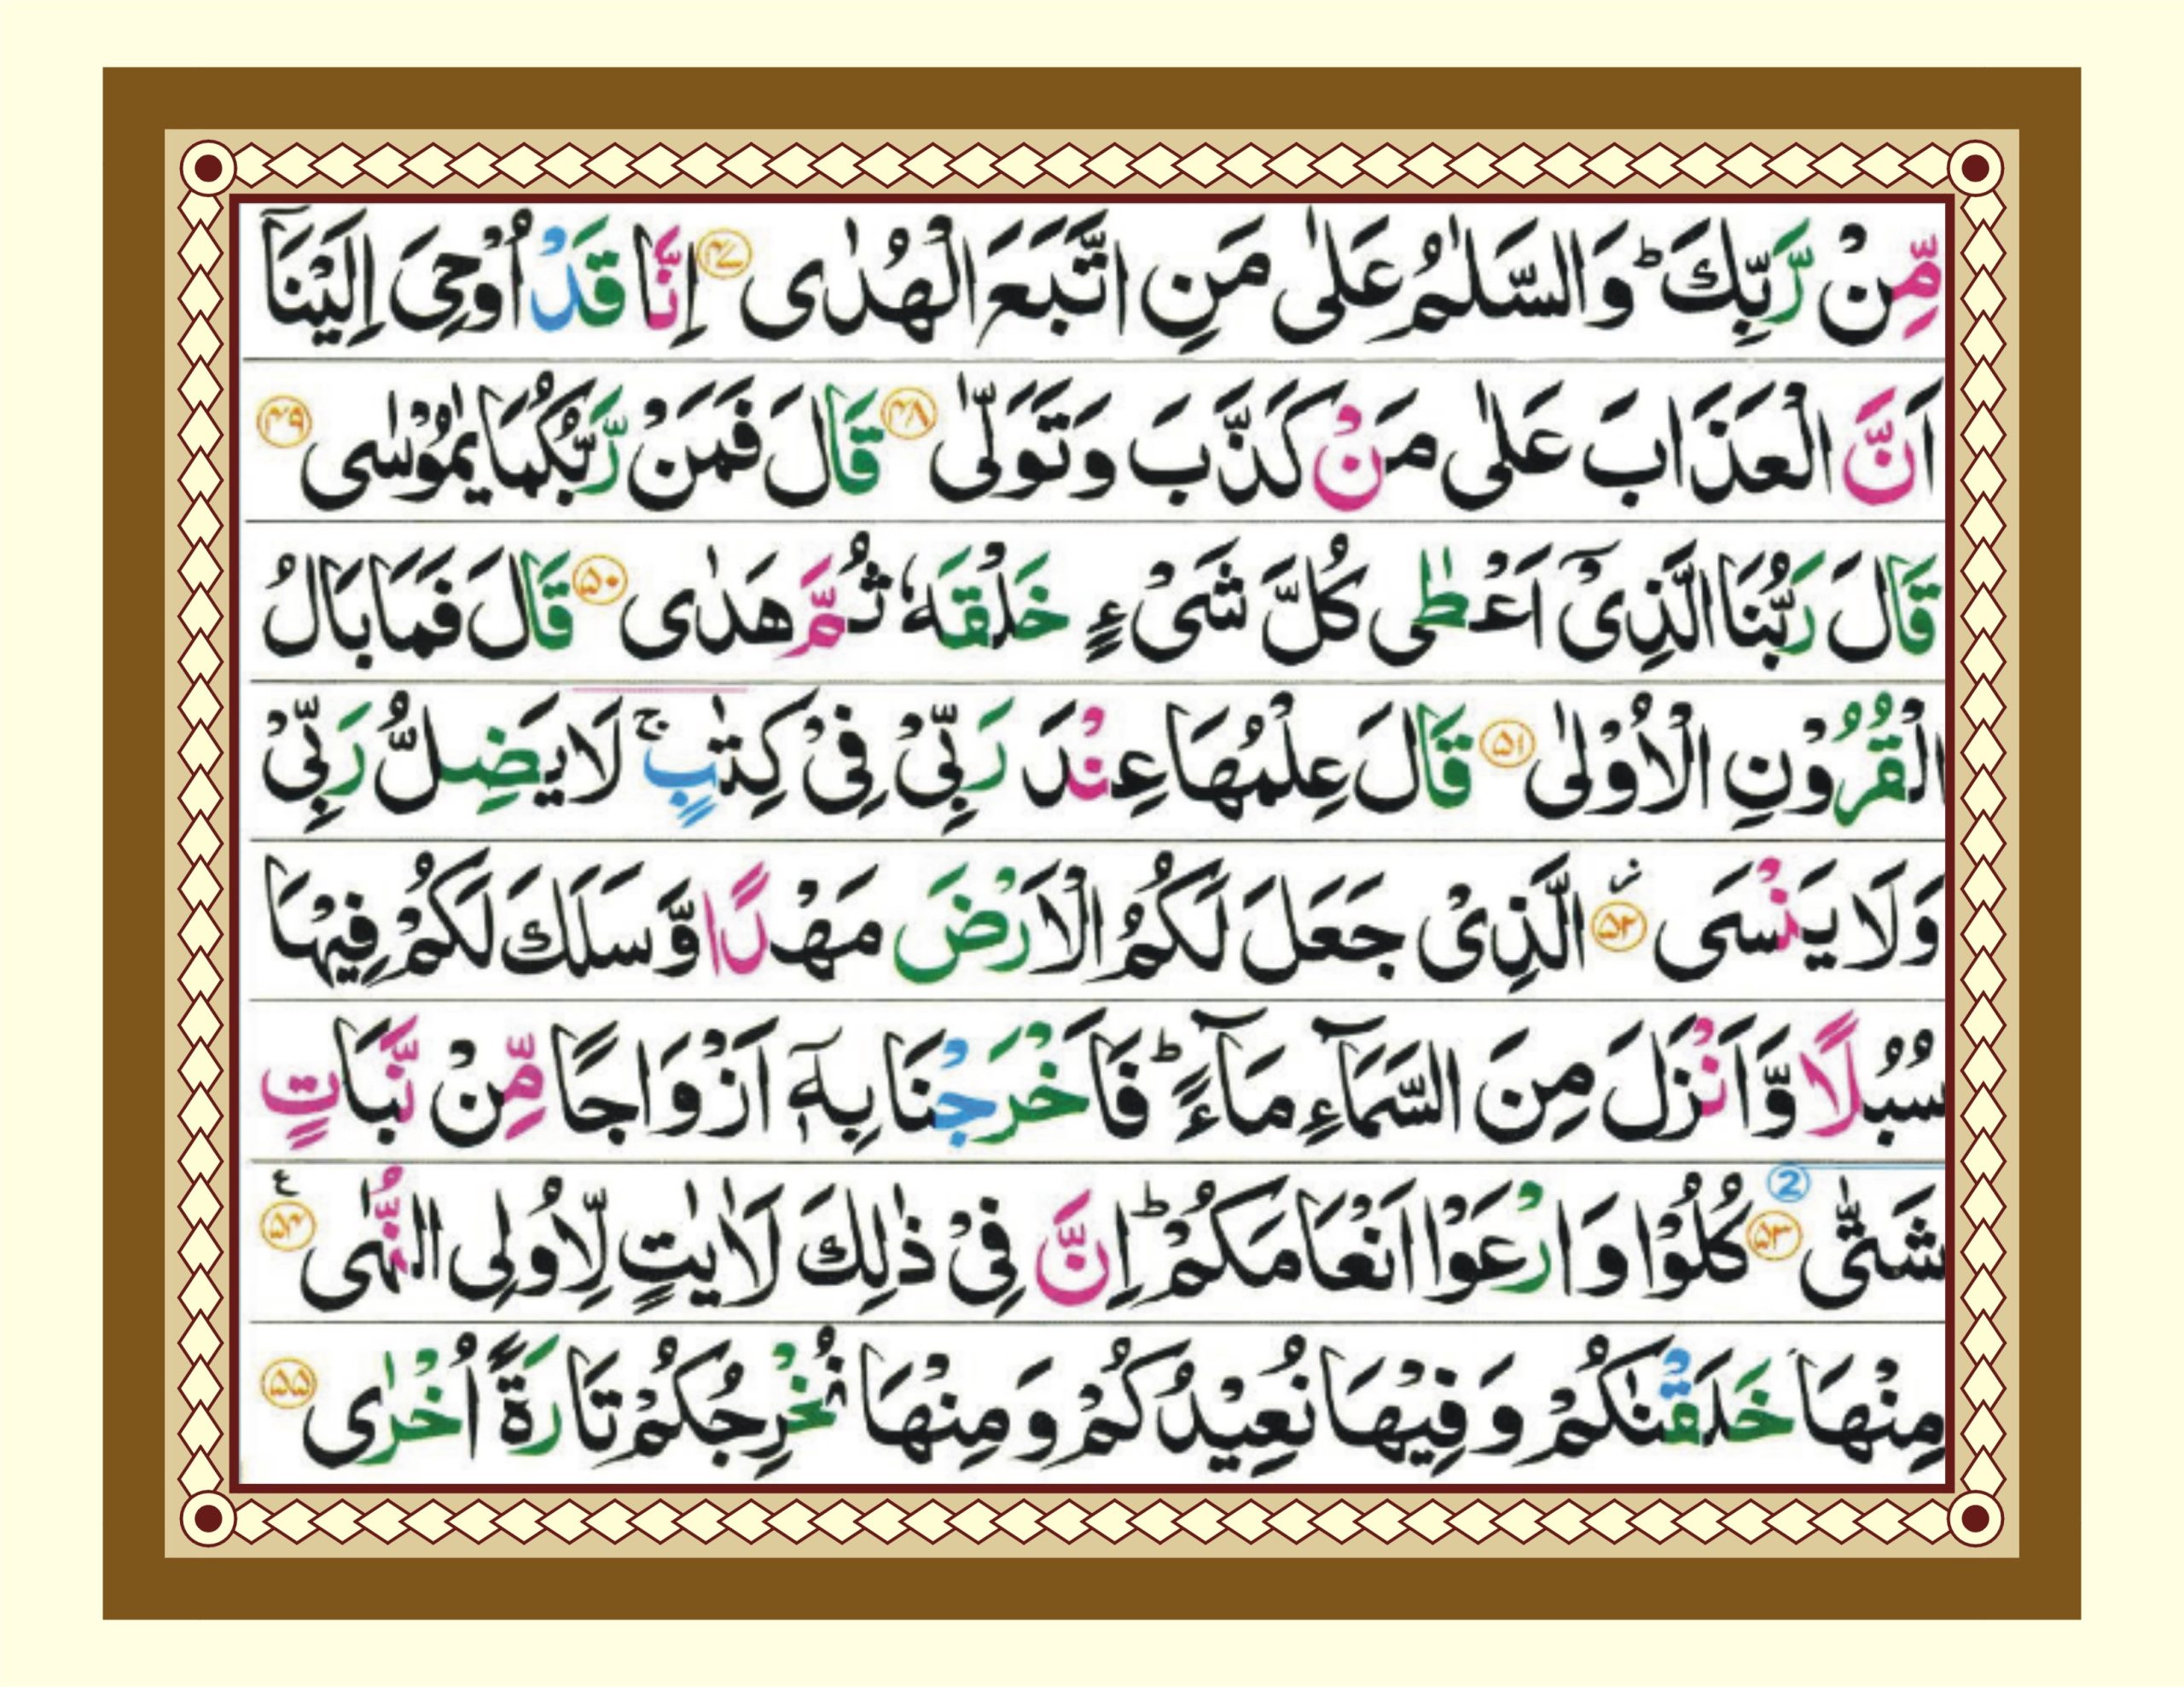 مِّنْ رَّبِّكَ ؕ وَالسَّلٰمُ عَلٰى مَنِ اتَّبَعَ الْهُدٰى ۴۷ اِنَّا قَدْ اُوْحِىَ اِلَيْنَاۤ
اَنَّ الْعَذَابَ عَلٰى مَنْ كَذَّبَ وَتَوَلّٰى ۴۸ قَالَ فَمَنْ رَّبُّكُمَا يٰمُوْسٰى ۴۹
قَالَ رَبُّنَا الَّذِىْۤ اَعْطٰى كُلَّ شَىْءٍ خَلْقَهٗ ثُمَّ هَدٰى ۵۰ قَالَ فَمَا بَالُ
الْقُرُوْنِ الْاُوْلٰى ۵۱ قَالَ عِلْمُهَا عِنْدَ رَبِّىْ فِىْ كِتٰبٍ ۚ لَا يَضِلُّ رَبِّىْ
وَلَا يَنْسَى ۵۲ ز الَّذِىْ جَعَلَ لَكُمُ الْاَرْضَ مَهْدًا وَّسَلَكَ لَكُمْ فِيْهَا
سُبُلًا وَّاَنْزَلَ مِنَ السَّمَآءِ مَآءً ؕ فَاَخْرَجْنَا بِهٖۤ اَزْوَاجًا مِّنْ نَّبَاتٍ
شَتّٰى ۵۳ 2 كُلُوْا وَارْعَوْا اَنْعَامَكُمْ ؕ اِنَّ فِىْ ذٰلِكَ لَاٰيٰتٍ لِّاُولِى النُّهٰى ۵۴ ع
مِنْهَا خَلَقْنٰكُمْ وَفِيْهَا نُعِيْدُكُمْ وَمِنْهَا نُخْرِجُكُمْ تَارَةً اُخْرٰى ۵۵